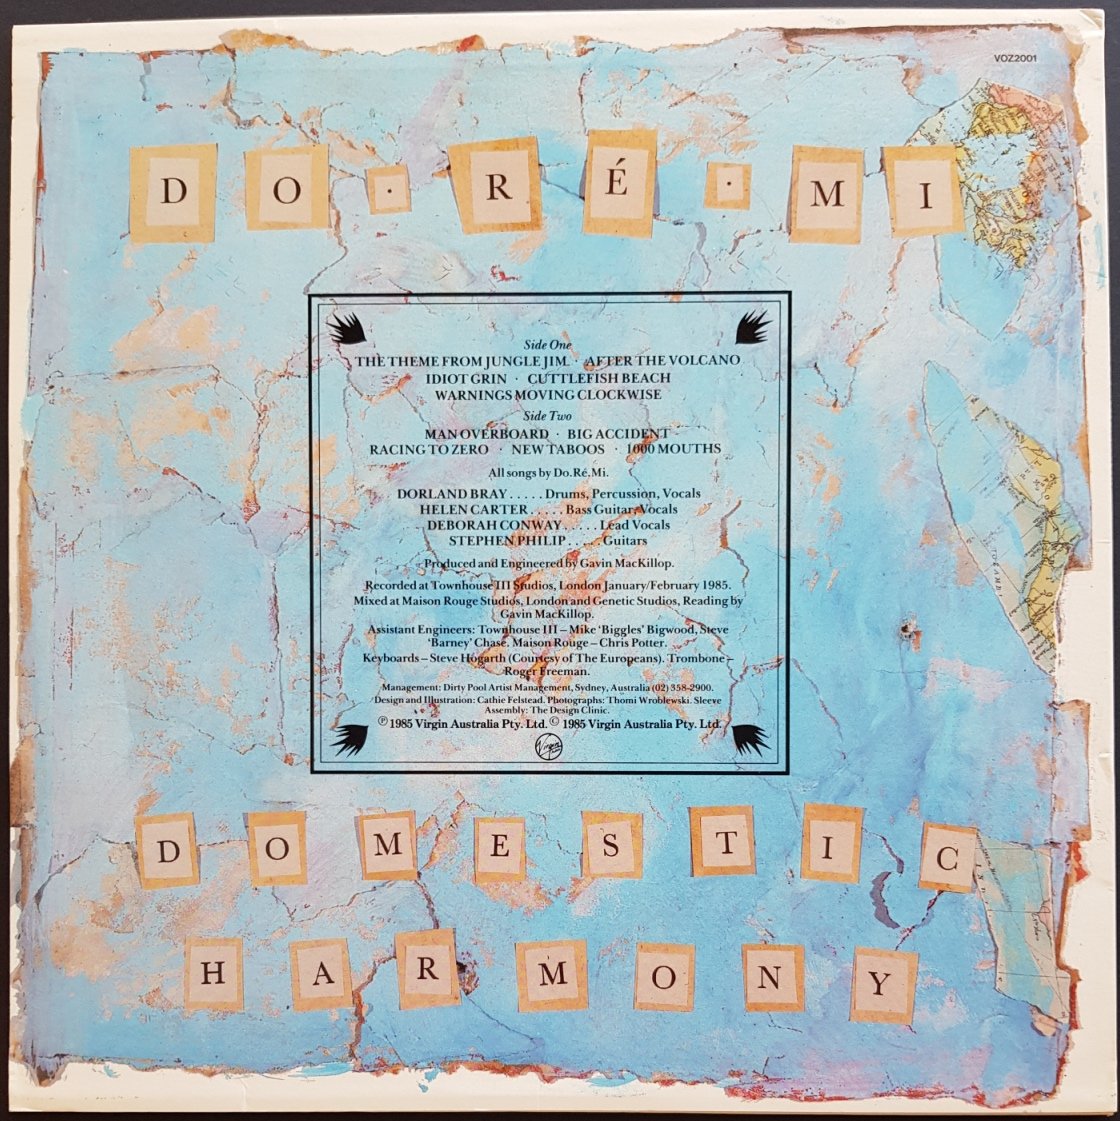 VOZ2001
DO·RÉ·MI
Side One
THE THEME FROM JUNGLE JIM · AFTER THE VOLCANO
IDIOT GRIN · CUTTLEFISH BEACH
WARNINGS MOVING CLOCKWISE
Side Two
MAN OVERBOARD · BIG ACCIDENT
RACING TO ZERO · NEW TABOOS · 1000 MOUTHS
All songs by Do.Ré.Mi.
DORLAND BRAY.....Drums, Percussion, Vocals
HELEN CARTER.....Bass Guitar, Vocals
DEBORAH CONWAY.....Lead Vocals
STEPHEN PHILIP.....Guitars
Produced and Engineered by Gavin MacKillop.
Recorded at Townhouse III Studios, London January/February 1985.
Mixed at Maison Rouge Studios, London and Genetic Studios, Reading by
Gavin MacKillop.
Assistant Engineers: Townhouse III – Mike ‘Biggles’ Bigwood, Steve
‘Barney’ Chase. Maison Rouge – Chris Potter.
Keyboards – Steve Hogarth (Courtesy of The Europeans). Trombone –
Roger Freeman.
Management: Dirty Pool Artist Management, Sydney, Australia (02) 358-2900.
Design and Illustration: Cathie Felstead. Photographs: Thomi Wroblewski. Sleeve
Assembly: The Design Clinic.
℗ 1985 Virgin Australia Pty. Ltd. © 1985 Virgin Australia Pty. Ltd.
Virgin
DOMESTIC
HARMONY